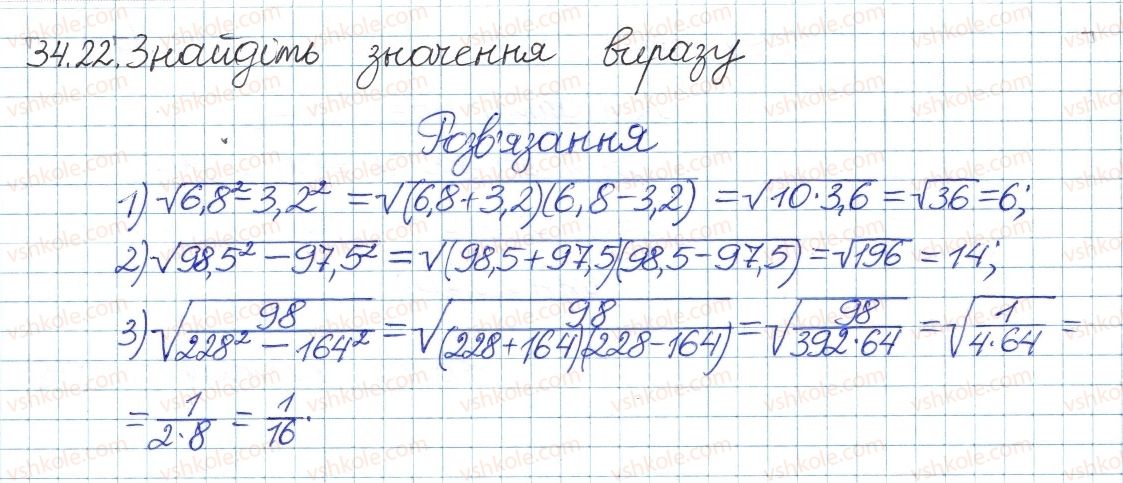 34.22. Знайдіть значення виразу
Розв'язання
1) √(6,8² - 3,2²) = √((6,8+3,2)(6,8-3,2)) = √(10·3,6) = √36 = 6;
2) √(98,5² - 97,5²) = √((98,5+97,5)(98,5-97,5)) = √196 = 14;
3) √(98/(228² - 164²)) = √(98/((228+164)(228-164))) = √(98/(392·64)) = √(1/(4·64)) =
= 1/(2·8) = 1/16.